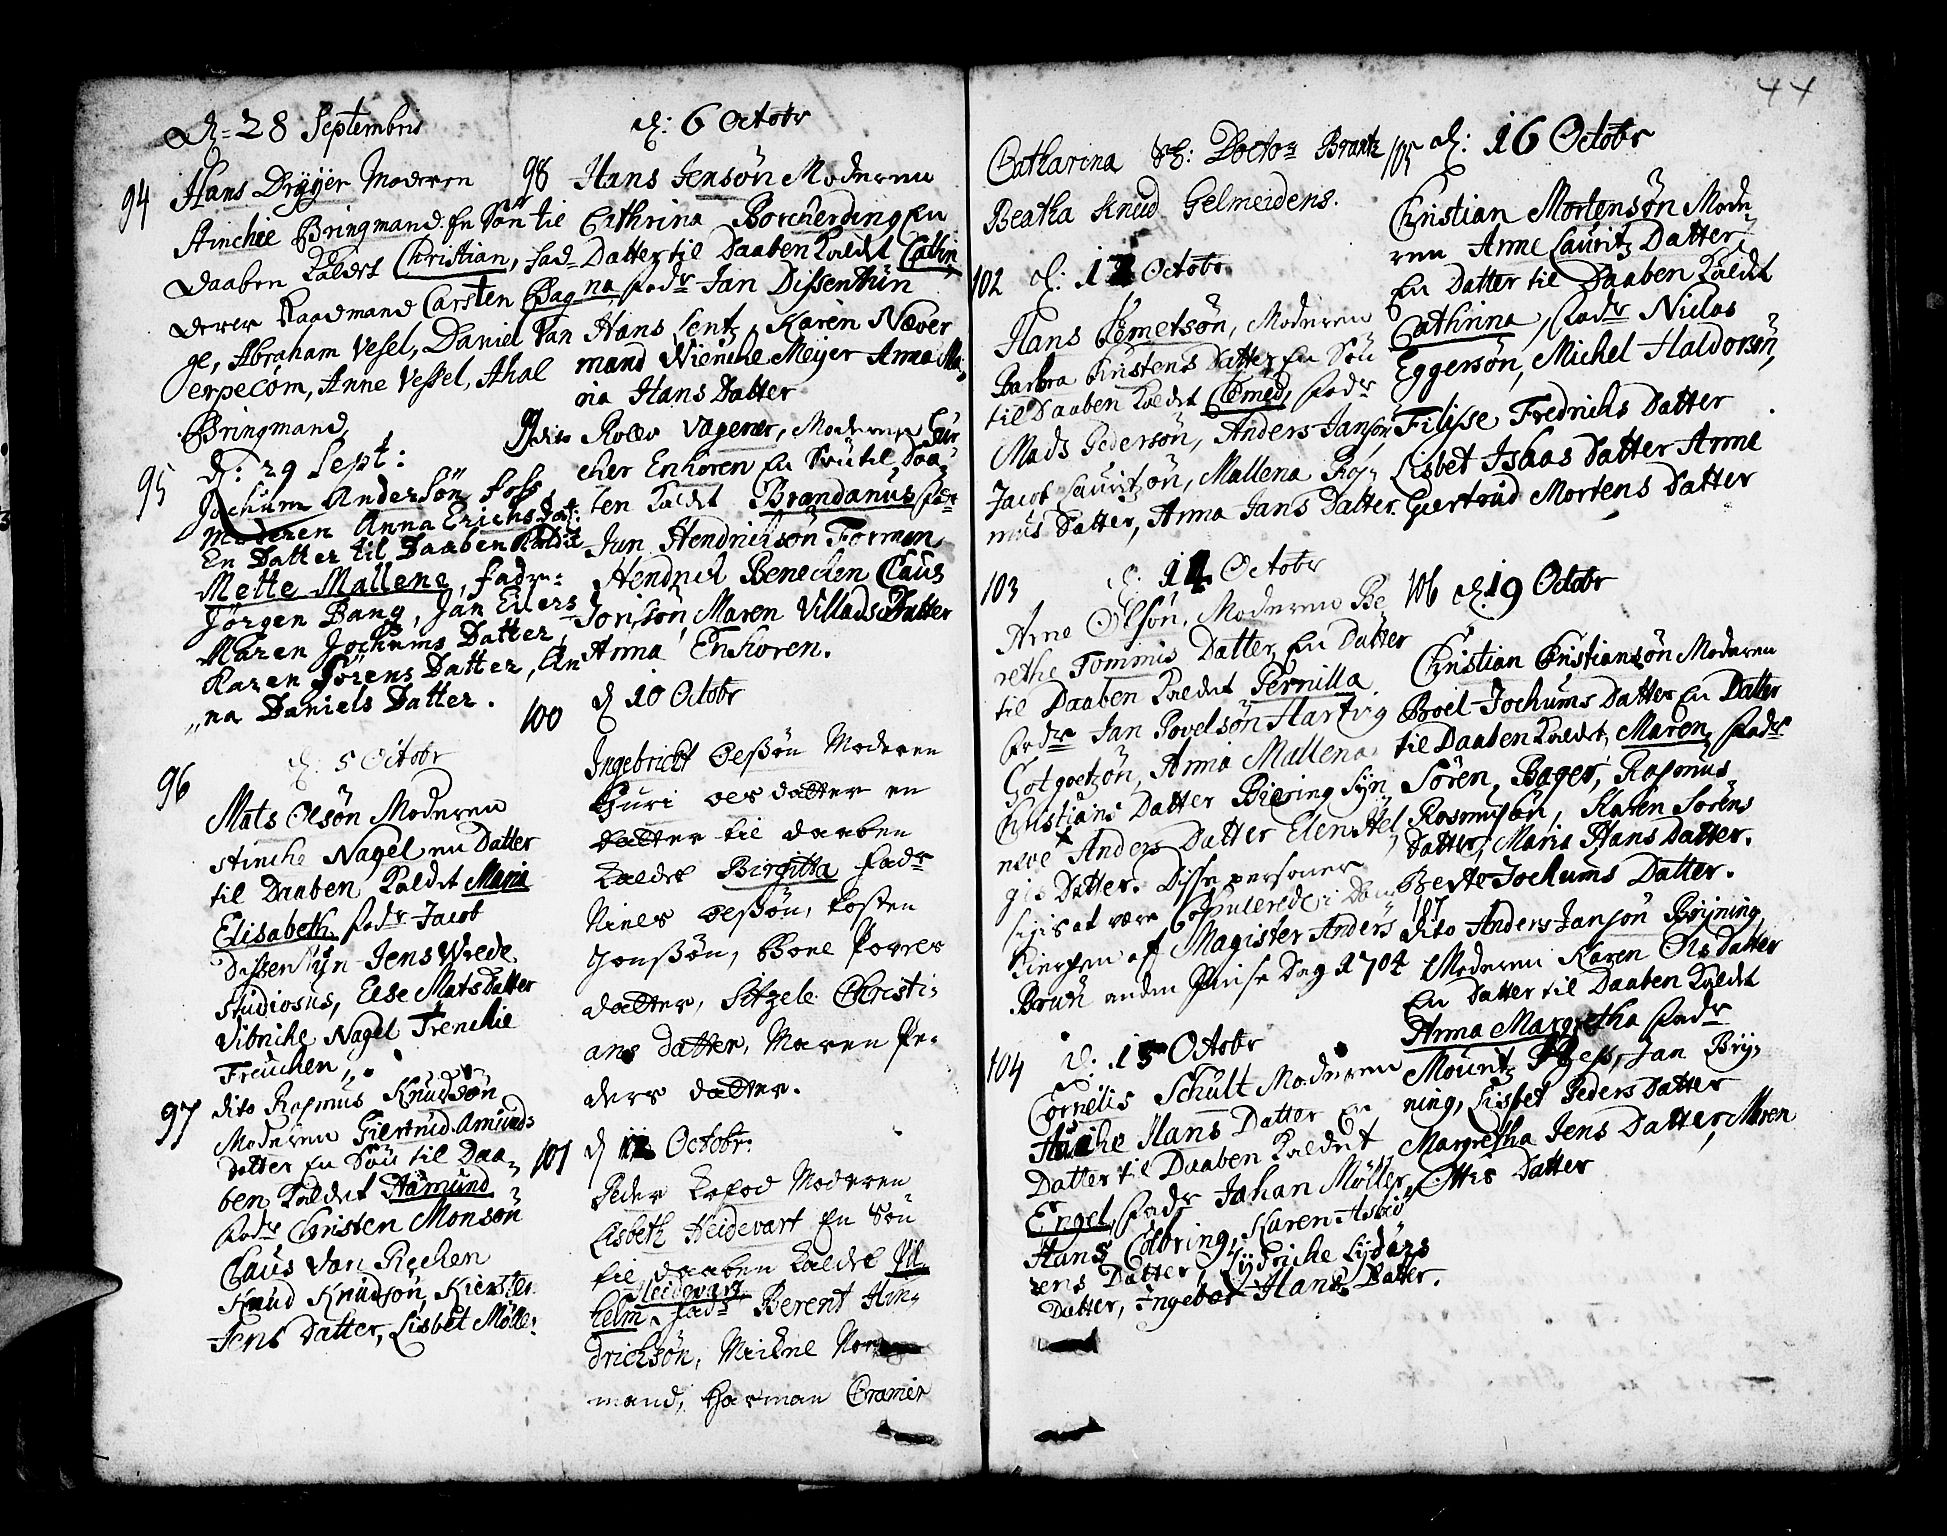 D: 28 Septembris
94 Hans Drøyer Moderen
Anchee Bringmand. En Søn til
Daaben Kaldet Christian, fad-
derer Raadmand Carsten Bag
ge, Abraham Vesel, Daniel Van
erpecom, Anne Vessel, Ahal
Bringmand.
95 d: 29 Sept:
Jochum Andersön Foss,
Moderen Anna Erichs Dat:
En Datter til Daaben Kaldet
Mette Mallene, fadr:
Jörgen Bang, Jan Eilers
Maren Jochums Datter,
Karen Sörens Datter, An
„na Daniels Datter.
96 d. 5 Octobr
Mats Olsön Moderen
Stinche Nagel en Datter
til Daaben Kaldet Maria
Elisabeth, fadr Jacob
Dissentyn Jens Wrede
Studiosus, Else Mats Datter
Vibriche Nagel Trenchie
Freuchen,
97 dito Rasmus Knudsön
Moderen Giertrud Amunds
Datter En Søn til Daa-
ben Kaldet Aamund
fadr Christen Monsön
Claus Van Rechen
Knud Knudsön, Kiersten
Jens Datter, Lisbet Møller
d: 6 Octobr
98 Hans Jensön Moderen
Cathrina Borcherding En
Datter til Daaben Kaldet Cathri
na, fadr Jan Dissentuin
Hans Lentz, Karen Næver
mand Nienche Meijer Anna Ma-
ria Hans Datter
99 dito Rollv Vagener, Moderen Gur
cher Enhoren En Søn til Daa-
ben Kaldet Brandanus fadr
Jun Hendrichsön Forman
Hendrich Benechen Claus
Jorisön, Maren Villads Datter
Anna Enhoren.
100 d 10 Octobr
Ingebricht Oelssøn Moderen
Guri Oels datter en
datter til daaben
Kaldet Birgitta fadr
Niels Oelssøn, Kosten
Jonssøn, Boel Povels
datter, Sitzele Christi-
ans datter, Maren Pe-
ders datter.
101 d 12 Octobr:
Peder Kofod Moderen
Lisbeth Heidevart En Søn
til daaben Kaldet Vil
Heidevart
helm, fadr Berent Hin-
drichsön, Michel Nor
mand, Harman Cramer
44
Catharina Sl: Doctor Brantz
Beatha Knud Gelmeidens.
102 d: 12 Octobr
Hans Clemetsön, Moderen
Barbra Christens Datter En Søn
til Daaben Kaldet Clemed, fadr
Mads Pedersön, Anders Jansön
Jacob Lauritzön, Mallena Ras-
mus Datter, Anna Jans Datter.
103 d. 14 Octobr
Arne Olsön, Moderen Be
rethe Tommis Datter, En Datter
til Daaben Kaldet Pernilla
fadr Jan Povelsön Hartvig
Gotgoetzön, Anna Mallena
Christians Datter Biering Syn
neve Anders Datter Elen Hel
gis Datter. Disse personer
sigis at være Copulerede i Dom
Kierchen af Magister Anders
Bruch anden Pinse Dag 1704
104 d. 15 Octobr
Cornelis Schult Moderen
Hanche Hans Datter En
Datter til Daaben Kaldet
Engel, fadr Johan Möller
Hans Colbring, Karen Asbiö
rens Datter, Lydriche Lyders
Datter, Ingebor Hans Datter.
105 d. 16 Octobr
Christian Mortensön Mode-
ren Anne Lauritz Datter
En Datter til Daaben Kaldet
Cathrina, fadr Niclas
Eggersön, Michel Haldorsön,
Filisse Fredrichs Datter
Lisbet Isaas Datter Anne
Giertrud Mortens Datter
106 d. 19 Octobr
Christian Christiansön Moderen
Broel Jochums Datter En Datter
til Daaben Kaldet, Maren, fadr
Sören Bager, Rasmus
Rasmusön, Karen Sörens
Datter, Maria Hans Datter.
Berte Jochums Datter.
107
dito Anders Jansön Bryning,
Moderen Karen Ols Datter
En Datter til Daaben Kaldet
Anna Margretha fadr
Mouritz Hess, Jan Bry-
ning, Lisbet Peders Datter
Margretha Jens Datter, Maren
Ottis Datter